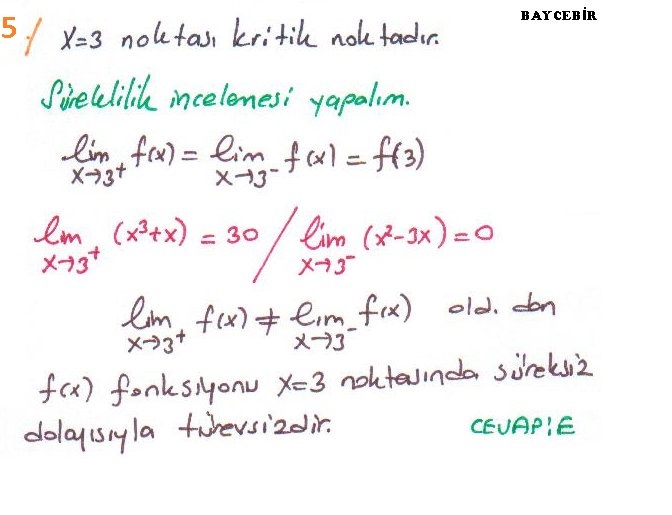 BAYCEBİR
5/ x=3 noktası kritik noktadır.
Süreklilik incelemesi yapalım.
lim x→3⁺ f(x) = lim x→3⁻ f(x) = f(3)
lim x→3⁺ (x³+x) = 30 / lim x→3⁻ (x²-3x) = 0
lim x→3⁺ f(x) ≠ lim x→3⁻ f(x) old. dan
f(x) fonksiyonu x=3 noktasında süreksiz
dolayısıyla türevsizdir. CEVAP:E